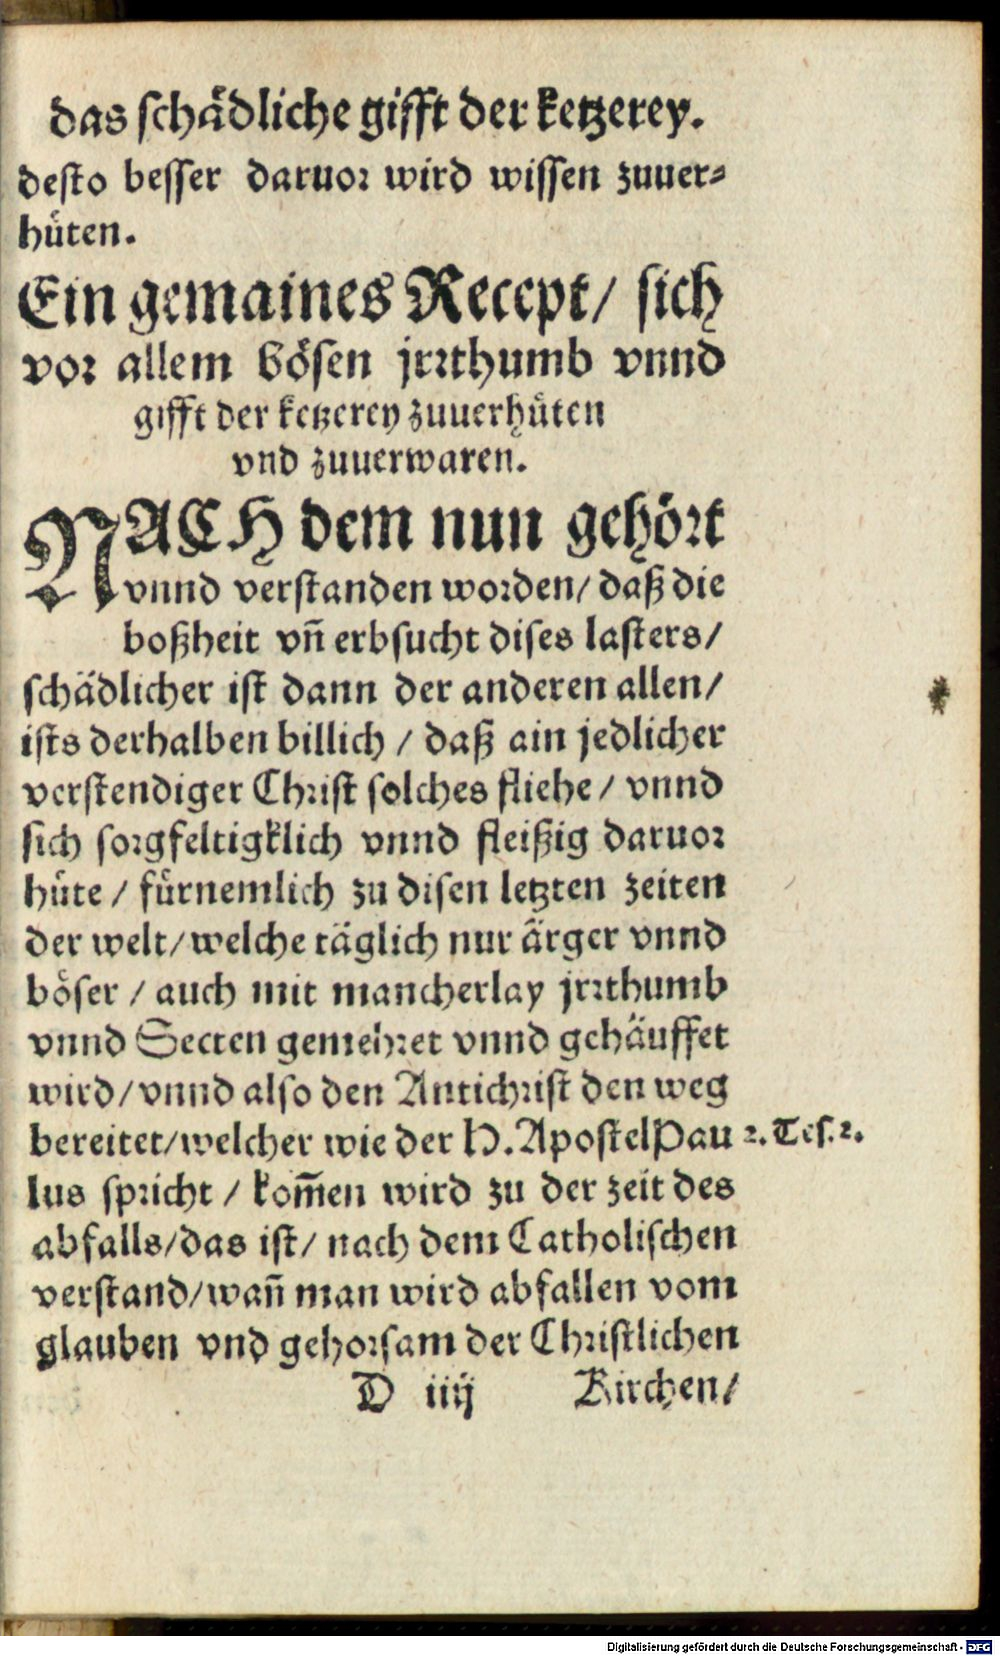 das schädliche gifft der ketzerey.
desto besser daruor wird wissen zuuer-
hüten.
Ein gemaines Recept/ sich
vor allem bösen jrrthumb vnnd
gifft der ketzerey zuuerhüten
vnd zuuerwaren.
NACH dem nun gehört
vnnd verstanden worden/ daß die
boßheit vn̄ erbsucht dises lasters/
schädlicher ist dann der anderen allen/
ists derhalben billich / daß ain jedlicher
verstendiger Christ solches fliehe / vnnd
sich sorgfeltigklich vnnd fleißig daruor
hüte / fürnemlich zu disen letzten zeiten
der welt/ welche täglich nur ärger vnnd
böser / auch mit mancherlay jrrthumb
vnnd Secten gemehret vnnd gehäuffet
wird/ vnnd also den Antichrist den weg
bereitet/welcher wie der H. Apostel Pau 2. Tes. 2.
lus spricht / kom̄en wird zu der zeit des
abfalls/das ist/ nach dem Catholischen
verstand/wan̄ man wird abfallen vom
glauben vnd gehorsam der Christlichen
D iiij Kirchen/
Digitalisierung gefördert durch die Deutsche Forschungsgemeinschaft - DFG